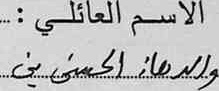 الاسم العائلي :
والدهاز الحسني